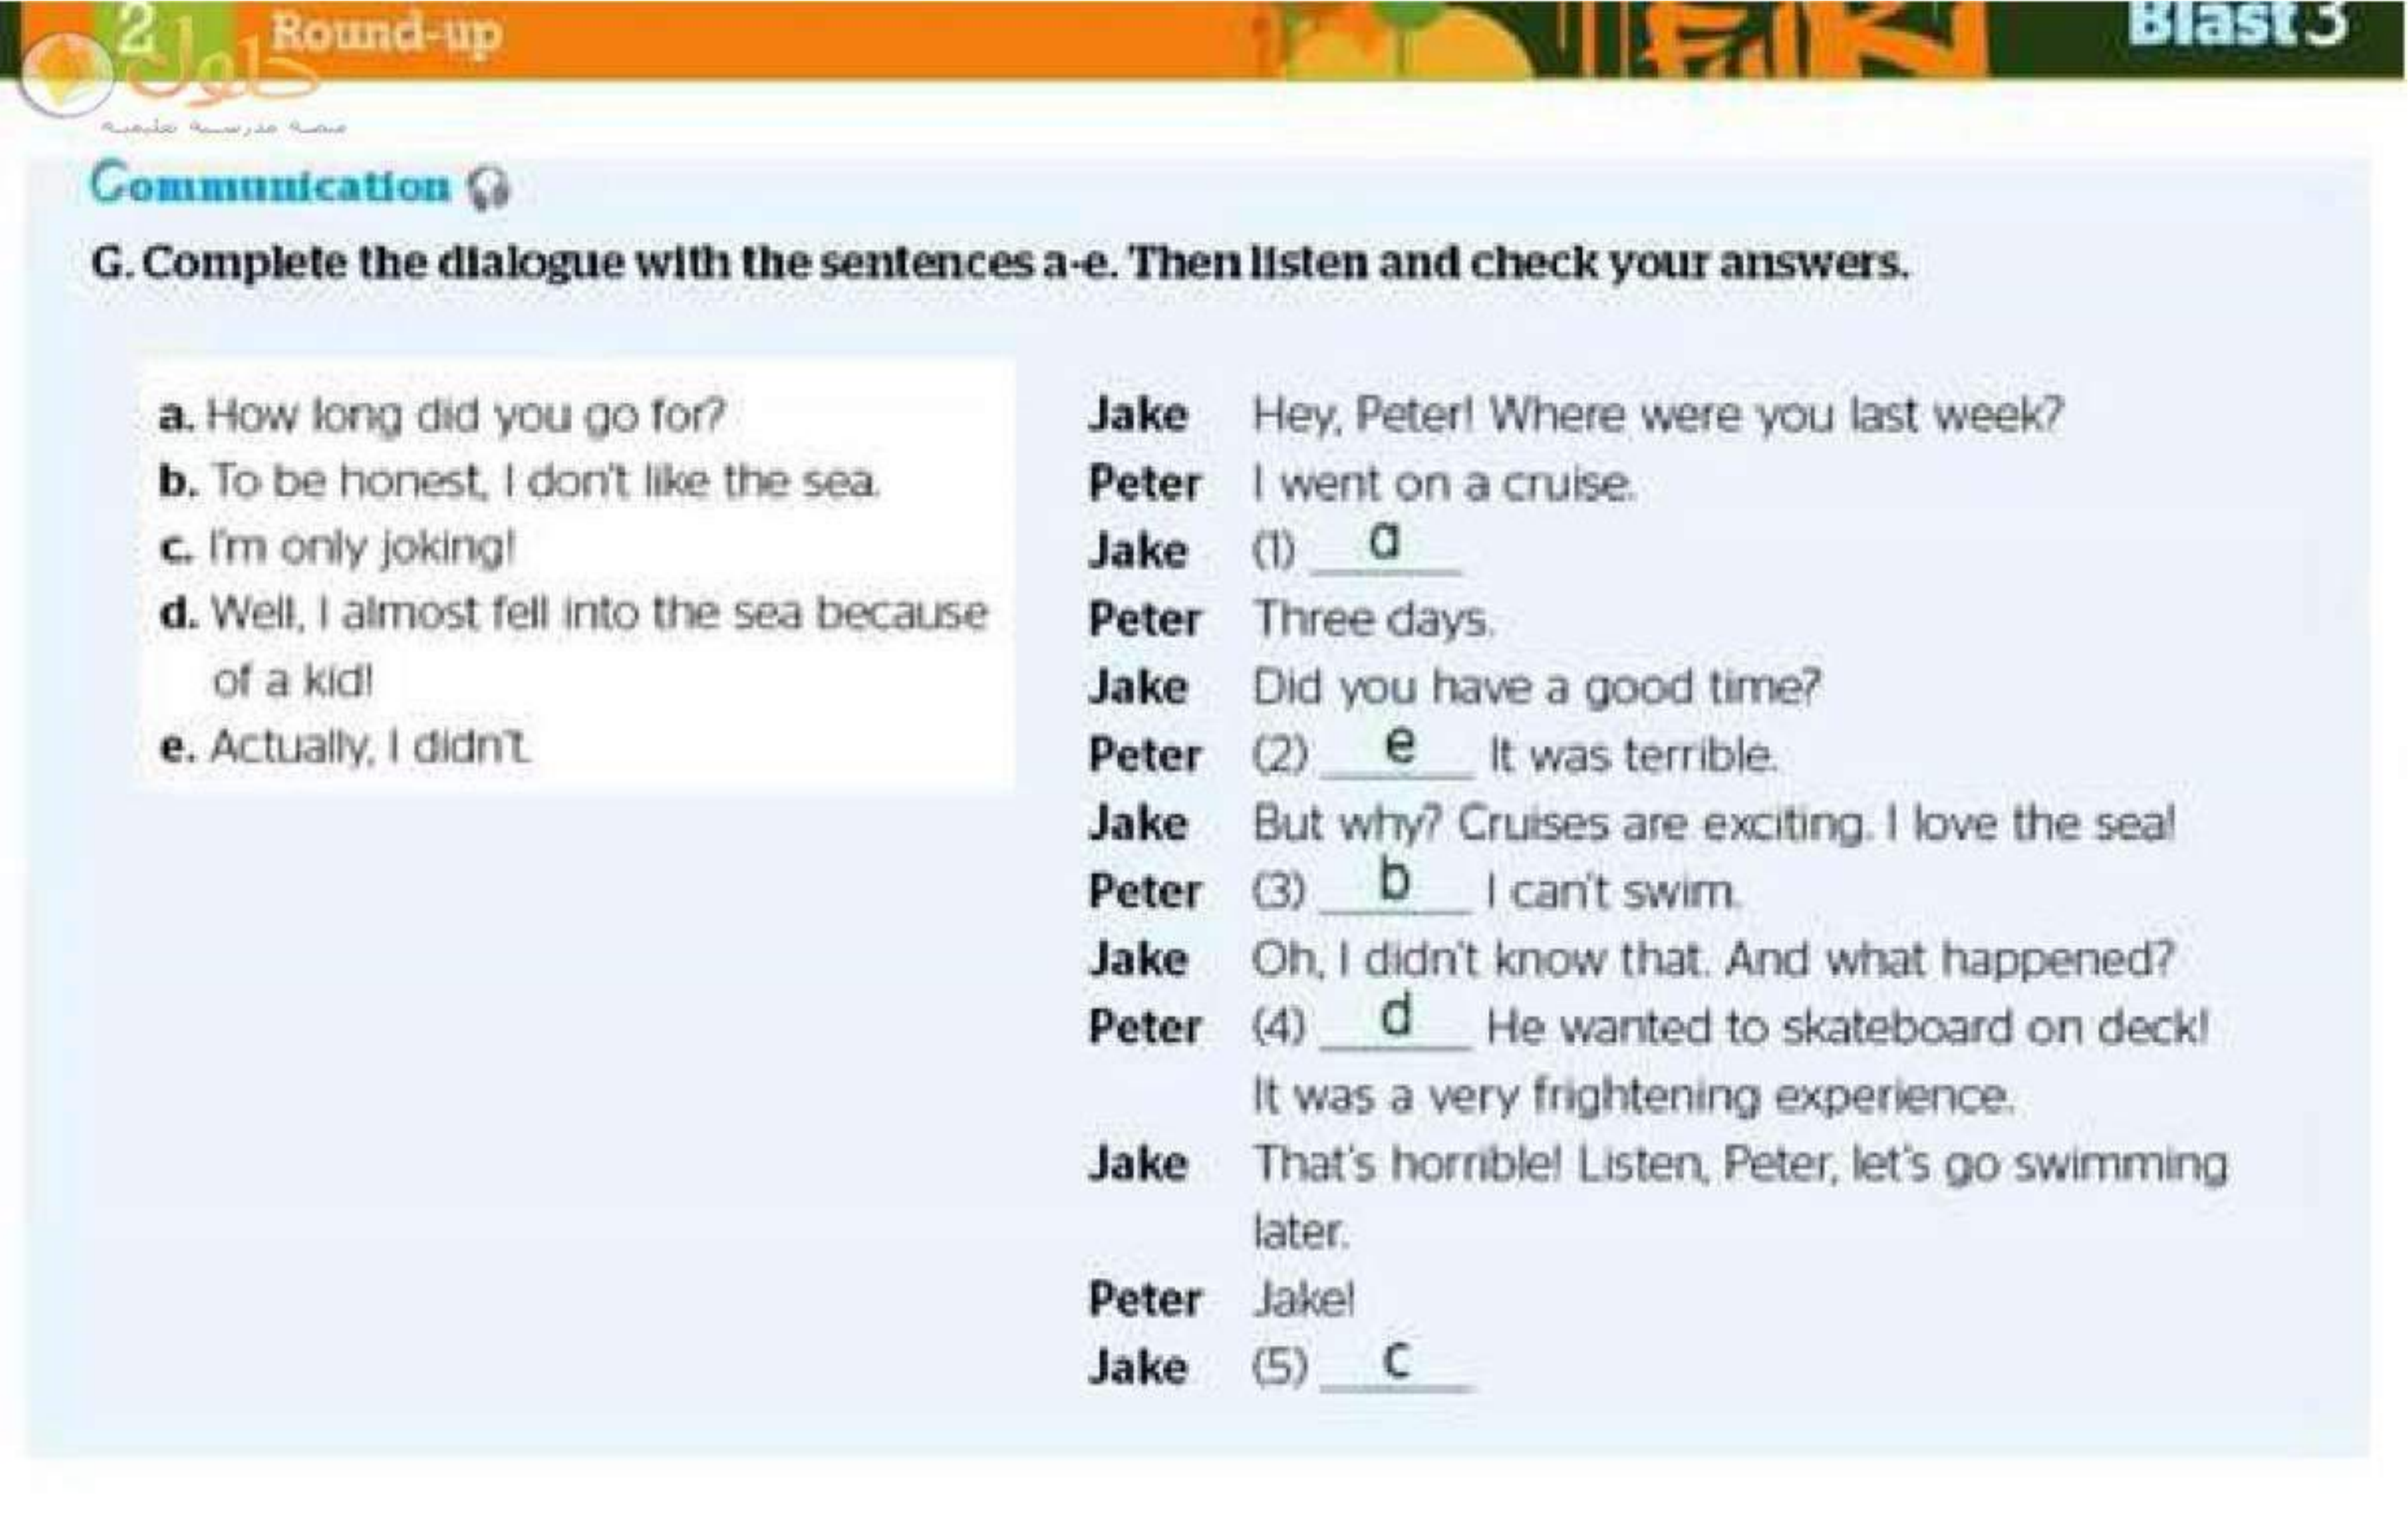 2 Round-up
Blast 3
حلول
منصة مدرسية تعليمية
Communication
G. Complete the dialogue with the sentences a-e. Then listen and check your answers.
a. How long did you go for?
b. To be honest, I don't like the sea.
c. I'm only joking!
d. Well, I almost fell into the sea because
of a kid!
e. Actually, I didn't.
Jake Hey, Peter! Where were you last week?
Peter I went on a cruise.
Jake (1) a
Peter Three days.
Jake Did you have a good time?
Peter (2) e It was terrible.
Jake But why? Cruises are exciting. I love the sea!
Peter (3) b I can't swim.
Jake Oh, I didn't know that. And what happened?
Peter (4) d He wanted to skateboard on deck!
It was a very frightening experience.
Jake That's horrible! Listen, Peter, let's go swimming
later.
Peter Jake!
Jake (5) c